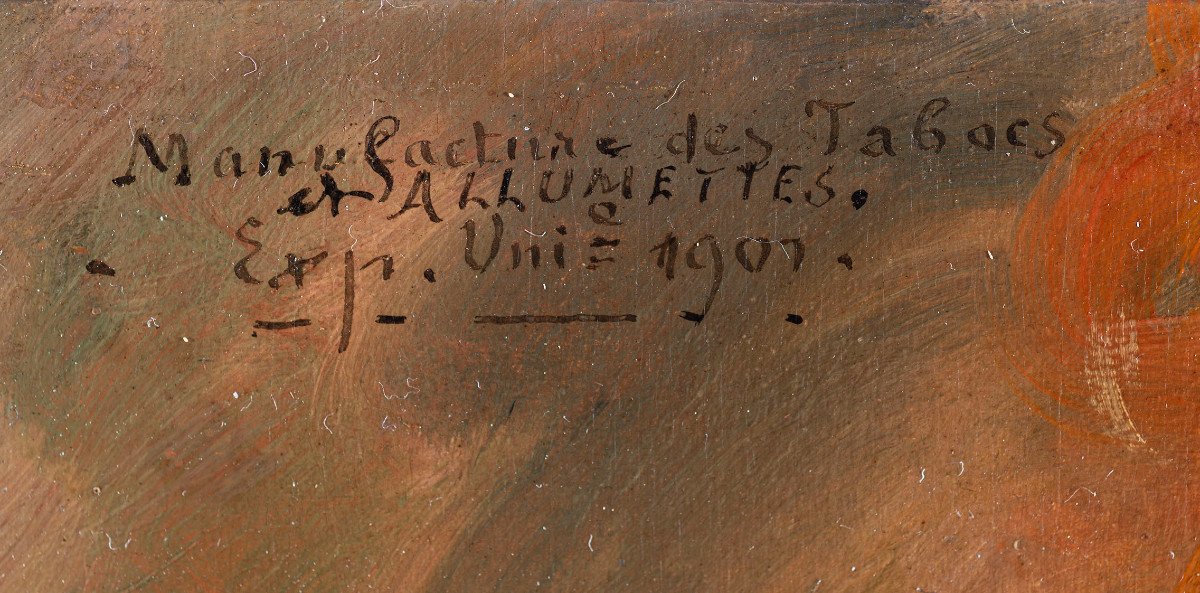 Manufacture des Tabacs
et ALLUMETTES.
Exp. Uni^e 1901.